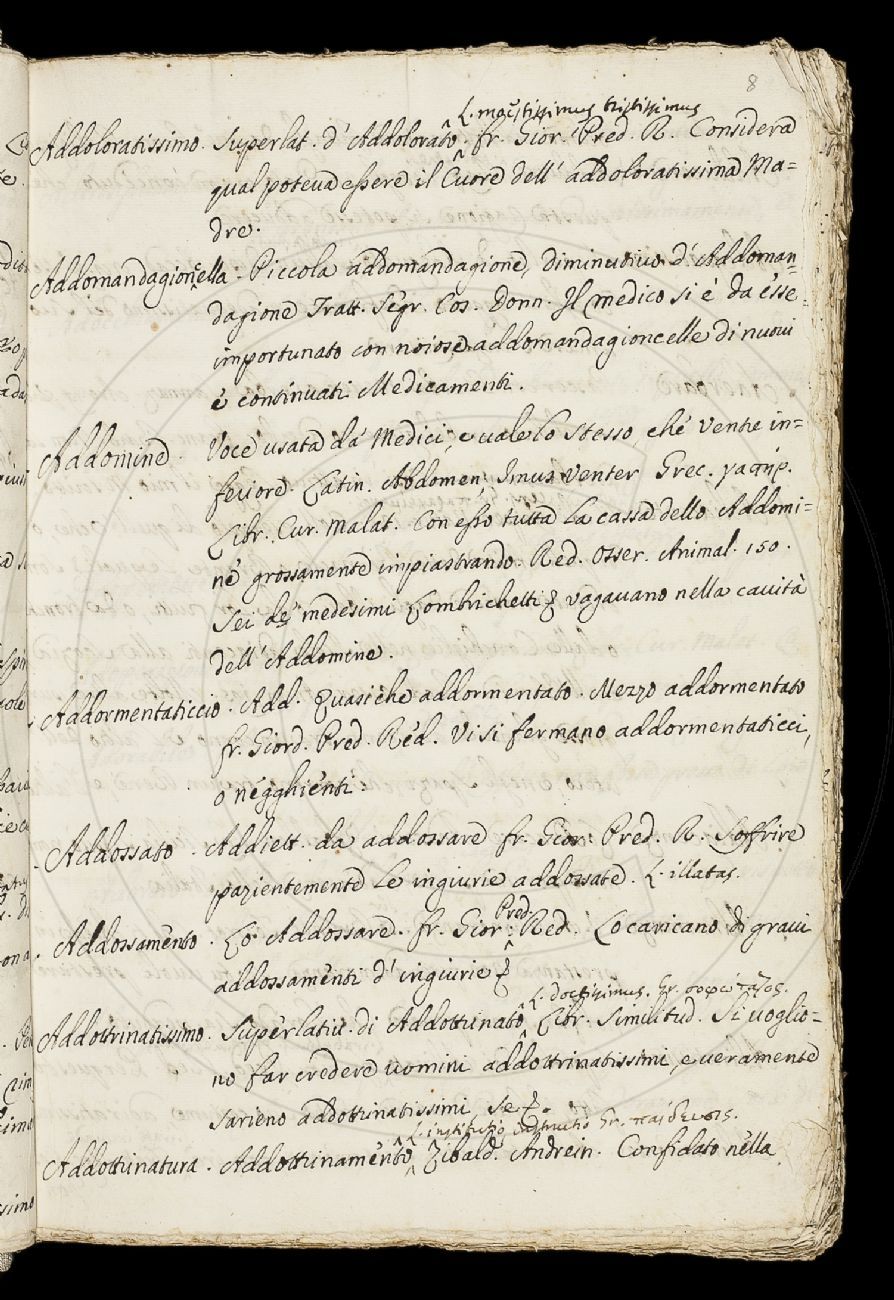 8
L. moestissimus tristissimus
Addoloratissimo. Superlat. d' Addolorato. fr. Gior. Pred. R. Considera
qual poteva essere il Cuore dell' addoloratissima Ma=
dre.
Addomandagioncella. Piccola addomandagione, diminutivo d' Addoman=
dagione Tratt. Segr. Cos. Donn. Il medico si è da esse.
importunato con noiose addomandagioncelle di nuovi
e continuati Medicamenti.
Addomine. Voce usata da' Medici, e vale lo stesso, che Ventre in=
feriore. Latin. Abdomen, Imus Venter Grec. γαςήρ.
Libr. Cur. Malat. Con esso tutta la cassa dello Addomi=
ne grossamente impiastrando. Red. Osser. Animal. 150.
Sei de' medesimi Lombrichetti vagavano nella cavità
dell' Addomine.
Addormentaticcio. Add. Quasiche addormentato. Mezzo addormentato
fr. Giord. Pred. Red. Vi si fermano addormentaticci,
o negghienti.
Addossato. Addiett. da addossare fr. Gior. Pred. R. Soffrire
pazientemente le ingiurie addossate. L. illatas.
Addossamento. Lo Addossare. fr. Gior. Pred. Red. Lo caricano di gravi
addossamenti d' ingiurie
L. doctissimus. Gr. σοφώτατος.
Addottrinatissimo. Superlativ. di Addottrinato Libr. Similitud. Si voglio=
no far credere uomini addottrinatissimi, e veramente
sarieno addottrinatissimi, se
L. institutio instructio Gr. παίδευσις.
Addottrinatura. Addottrinamento Zibald. Andrein. Confidato nella